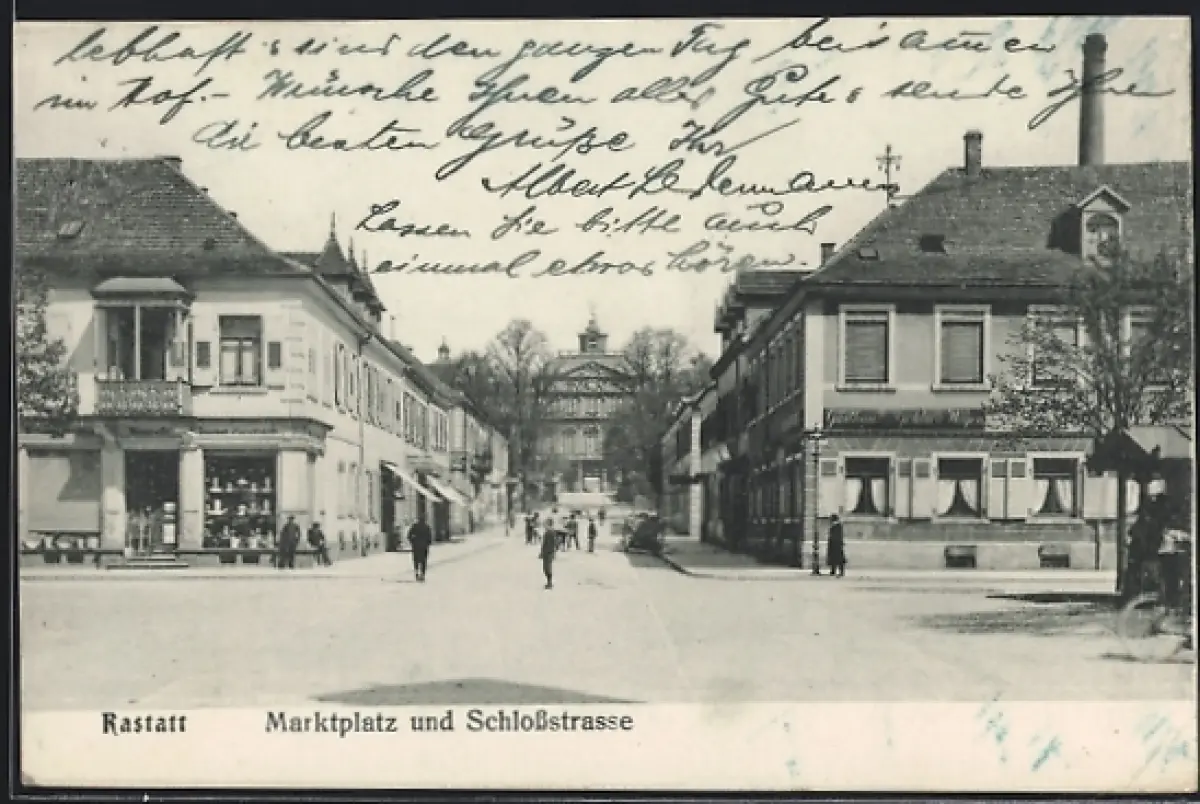 lebhaft & sind den ganzen Tag beisamen
im Hof.- Wünsche Ihnen alles Gute & sende Ihnen
die besten Grüße Ihr
Albert Ledermann
Lassen Sie bitte auch
einmal etwas hören.
Rastatt Marktplatz und Schloßstrasse